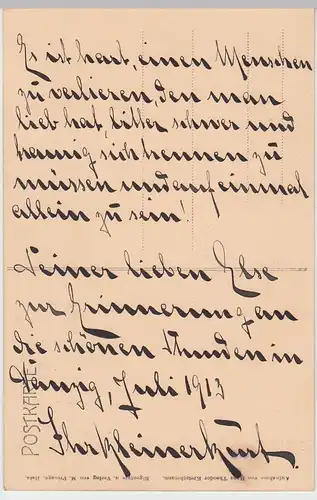 Es ist hart, einen Menschen
zu verlieren, den man
lieb hat, bitter schwer und
traurig sich trennen zu
müssen und auf einmal
allein zu sein!
Seiner lieben Else
zur Erinnerung an
die schönen Stunden in
Danzig, Juli 1913
Ihr kleiner
POSTKARTE
Aufnahme von Hans Theodor
Eigentum u. Verlag von M.